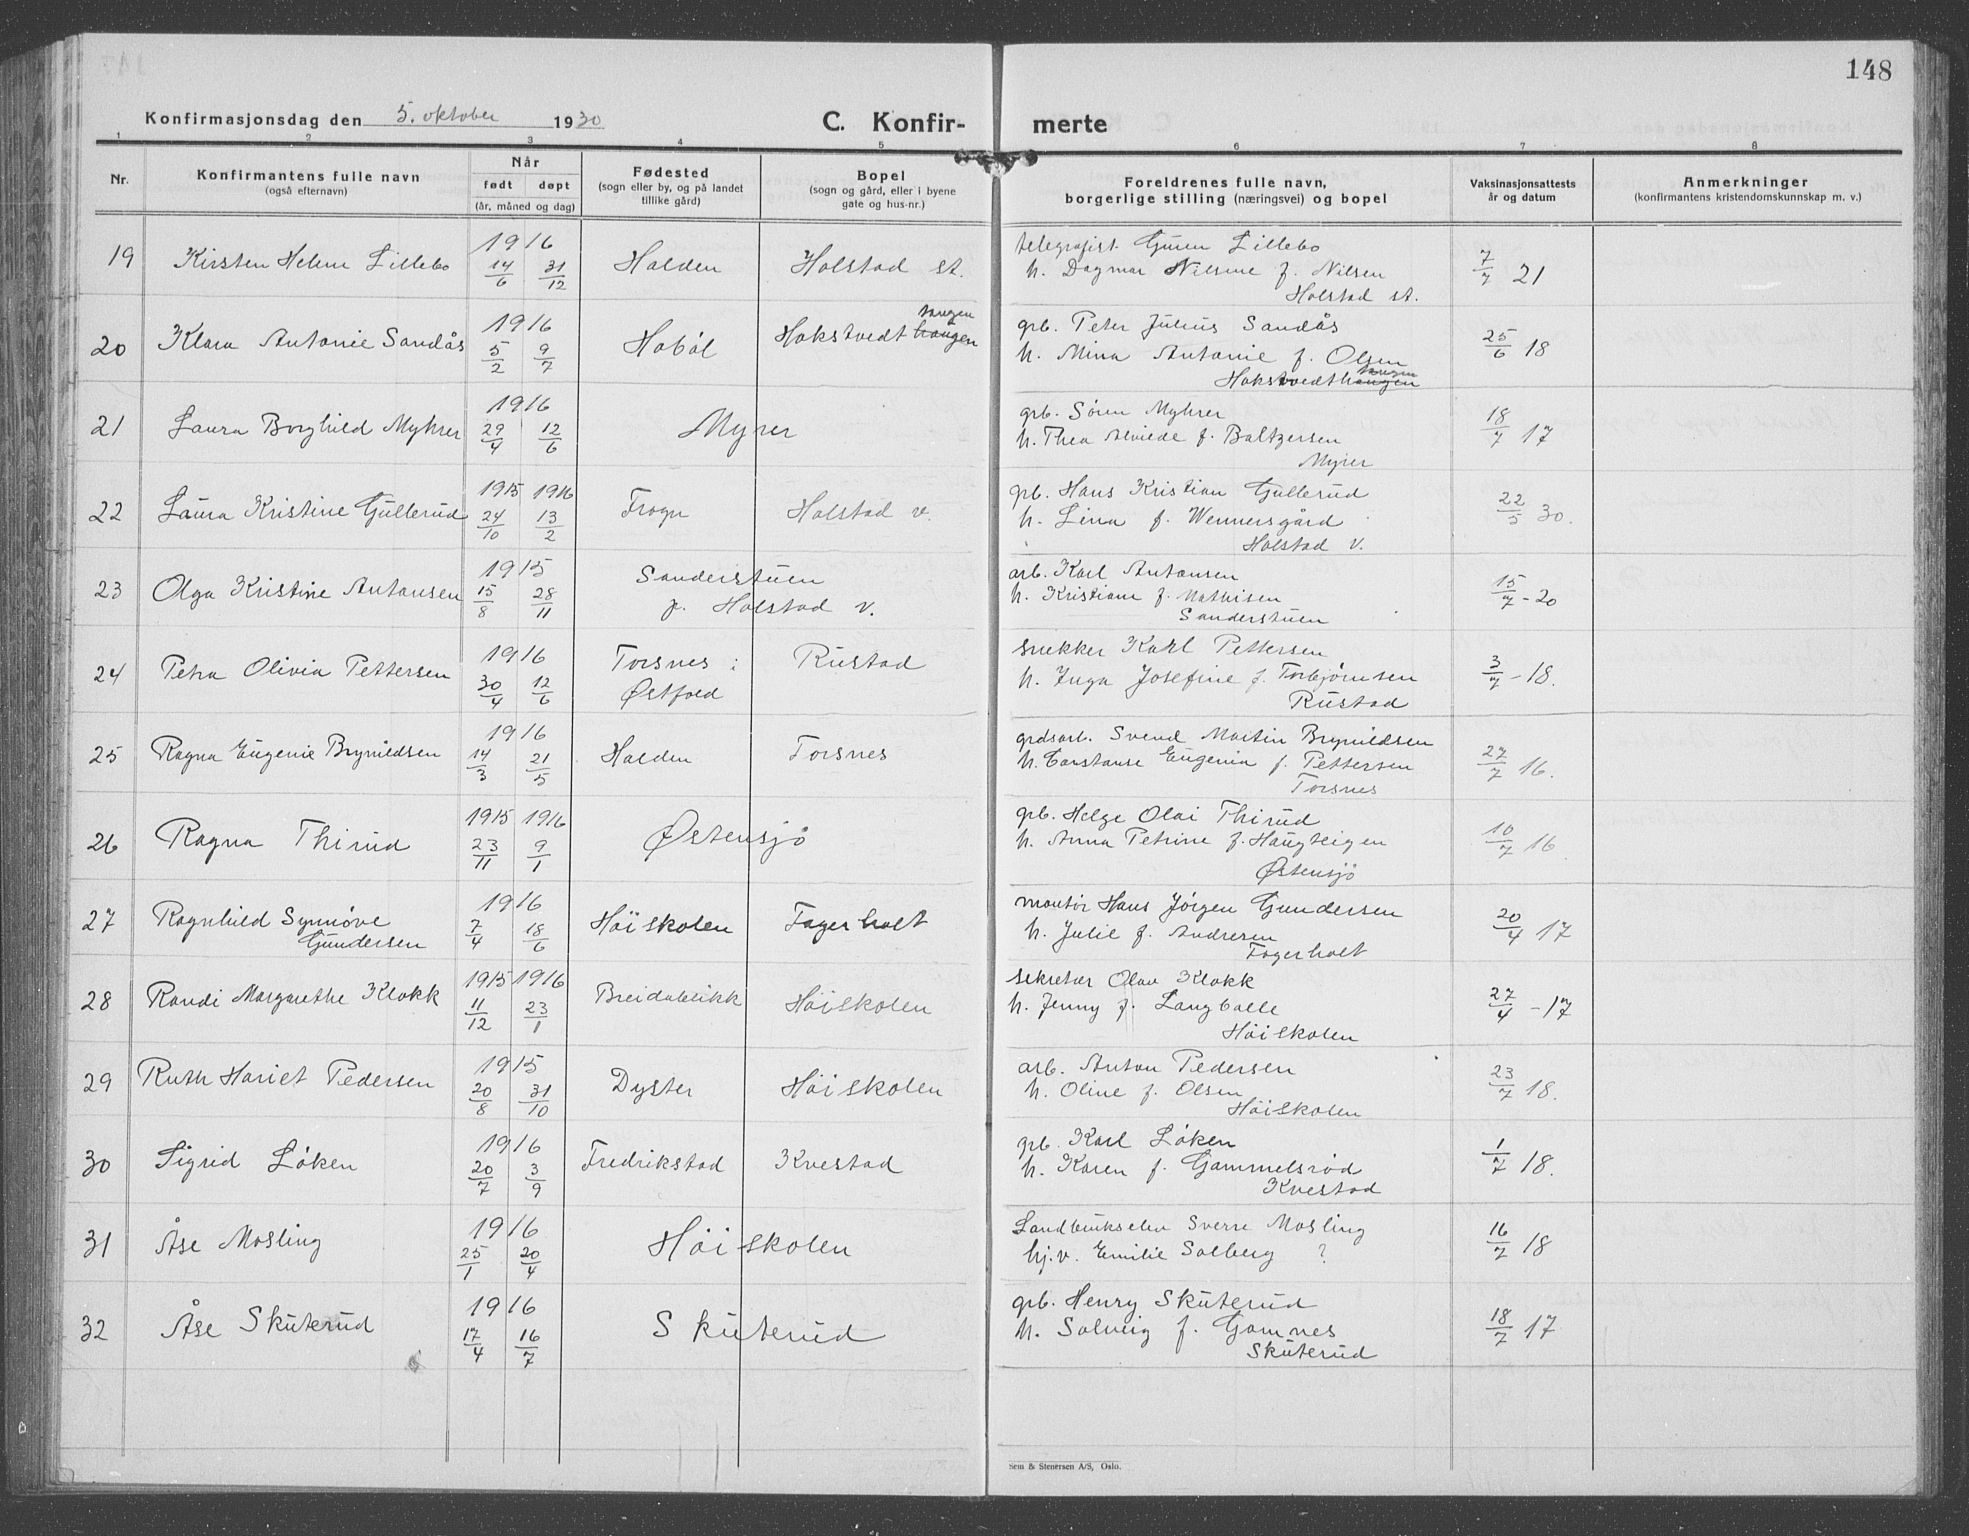 148
Konfirmasjonsdag den 5. oktober 1930 C. Konfir- merte
1 2 3 4 5 6 7 8
Nr.
Konfirmantens fulle navn
(også efternavn)
Når
født døpt
(år, måned og dag)
Fødested
(sogn eller by, og på landet
tillike gård)
Bopel
(sogn og gård, eller i byene
gate og hus-nr.)
Foreldrenes fulle navn,
borgerlige stilling (næringsvei) og bopel
Vaksinasjonsattests
år og datum
Anmerkninger
(konfirmantens kristendomskunnskap m. v.)
19 Kirsten Helene Lillebo 1916 14/6 31/12 Halden Holstad st.
telegrafist Lillebo
h. Dagmar Nilsine f. Nilsen
Holstad st.
7/7 21
20 Klara Antonie Sandås 1916 5/2 9/7 Hobøl Hokstvedt haugen tangen
grb. Peter Julius Sandås
h. Mina Antonie f. Olsen
Hokstvedthaugen tangen
25/6 18
21 Laura Borghild Myhrer 1916 29/4 12/6 Myrer
grb. Sören Myhrer
h. Thea f. Baltzersen
Myrer
18/7 17
22 Laura Kristine Gullerud 1915 1916 24/10 13/2 Frogn Holstad v.
grb. Hans Kristian Gullerud
h. Lina f. Wennersgård
Holstad v.
22/5 30.
23 Olga Kristine Antonsen 1915 15/8 28/11 Sanderstuen
p. Holstad v.
arb. Karl Antonsen
h. Kristiane f. Mathisen
Sanderstuen
15/7 - 20
24 Petra Olivia Pettersen 1916 30/4 12/6 Torsnes i
Østfold
Rustad
snekker Karl Pettersen
h. Inga Josefine f. Torbjørnsen
Rustad
3/7 - 18.
25 Ragna Eugenie Brynildsen 1916 14/3 21/5 Halden Torsnes
grdsarb. Svend Martin Brynildsen
h. Constanse Eugenia f. Pettersen
Torsnes
27/7 16.
26 Ragna Thirud 1915 1916 23/11 9/1 Østensjø
grb. Helge Olai Thirud
h. Anna Petrine f. Haugteigen
Østensjö
10/7 16
27 Ragnhild Synnøve
Gundersen
1916 7/4 18/6 Höiskolen Fagerholt
montør Hans Jörgen Gundersen
h. Julie f. Andresen
Fagerholt
20/4 17
28 Randi Margarethe Klokk 1915 1916 11/12 23/1 Breidablikk Höiskolen
sekretær Olav Klokk
h. Jenny f. Langballe
Höiskolen
27/4 - 17
29 Ruth Hariet Pedersen 1915 20/8 31/10 Dyster Höiskolen
arb. Anton Pedersen
h. Oline f. Olsen
Höiskolen
23/7 18.
30 Sigrid Löken 1916 20/7 3/9 Fredrikstad Kvestad
grb. Karl Løken
h. Karen f. Gammelsröd
Kvestad
1/7 18.
31 Åse Mosling 1916 25/1 20/4 Höiskolen
Landbrukselev Sverre Mosling
hj.v. Emilie Solberg ?
16/7 18
32 Åse Skuterud 1916 17/4 16/7 Skuterud
grb. Henry Skuterud
h. Solveig f. Gamnes
Skuterud
18/7 17
Sem & Stenersen A/S, Oslo.